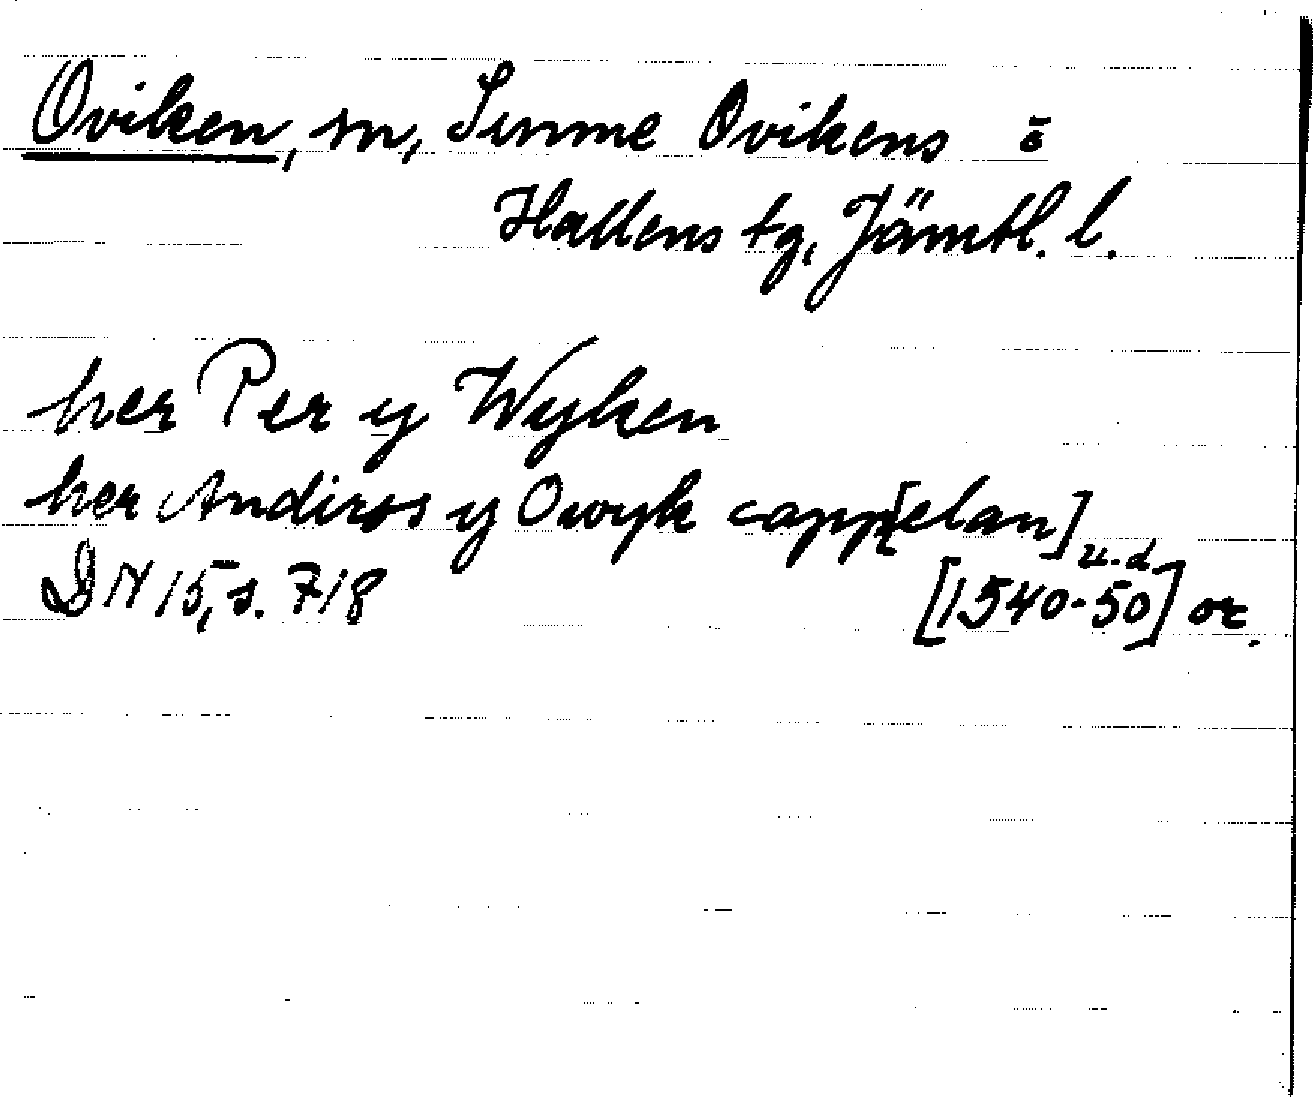 Oviken, sn, Sunne Ovikens o
Hallens tg, Jämtl. l.
her Per y Wyken
her Andiros y Owyk capp[elan]
DN 15, s. 718 u.d. [1540-50] or.